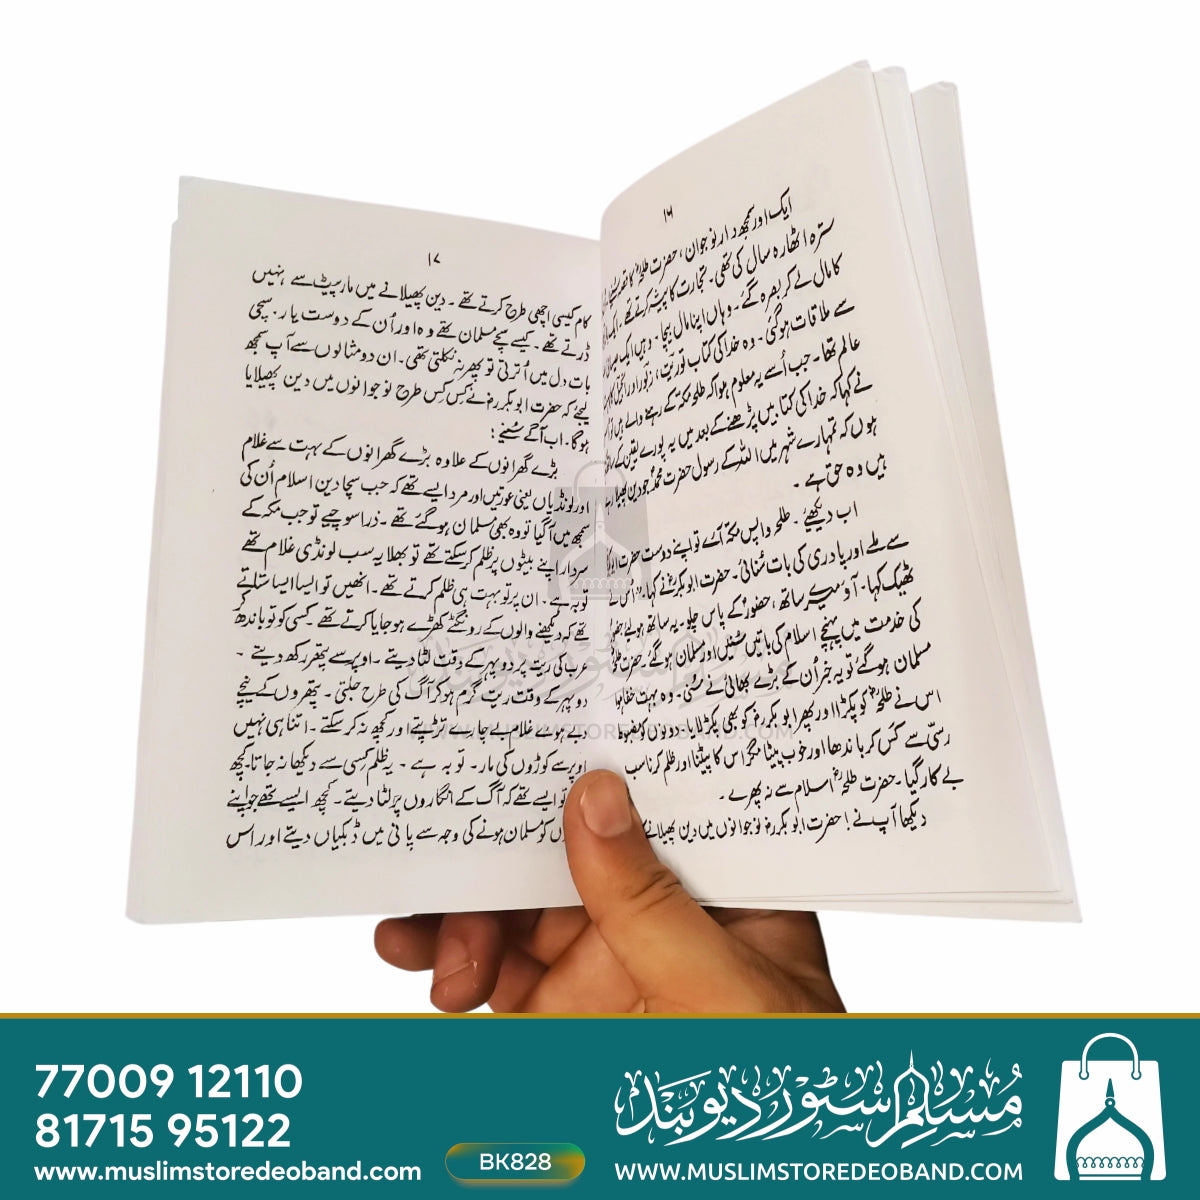 ۱۶
ایک اور سمجھ دار نوجوان، حضرت طلحہؓ کا قصہ سُنیے
سترہ اٹھارہ سال کی تھی۔ تجارت کا پیشہ کرتے تھے۔ ایک
کا مال لے کر بصرہ گئے۔ وہاں اپنا مال بیچا۔ وہیں ایک
سے ملاقات ہوگئی۔ وہ خدا کی کتاب توریت، زبور اور انجیل کا
عالم تھا۔ جب اُسے یہ معلوم ہوا کہ طلحہ مکّہ کے رہنے والے ہیں تو اُس
نے کہا کہ خدا کی کتابیں پڑھنے کے بعد میں یہ پورے یقین کے ساتھ
ہوں کہ تمہارے شہر میں اللہ کے رسول حضرت محمدؐ جو دین پھیلا رہے
ہیں وہ حق ہے۔
اب دیکھیے۔ طلحہ واپس مکّہ آئے تو اپنے دوست حضرت ابوبکرؓ
سے ملے اور پادری کی بات سُنائی۔ حضرت ابوبکرؓ نے کہا۔ "اُس نے
ٹھیک کہا۔ آؤ میرے ساتھ، حضورؐ کے پاس چلو۔ یہ ساتھ ہولیے حضورؐ
کی خدمت میں پہنچے اسلام کی باتیں سُنیں اور مسلمان ہوگئے۔ حضرت طلحہؓ
مسلمان ہوگئے تو یہ خبر اُن کے بڑے بھائی نے سُنی۔ وہ بہت خفا ہوا
اس نے طلحہؓ کو پکڑا اور پھر ابوبکرؓ کو بھی پکڑ لایا۔ دونوں کو مضبوط
رسّی سے کس کر باندھا اور خوب پیٹا مگر اس کا پیٹنا اور ظلم کرنا سب
بے کار گیا۔ حضرت طلحہؓ اسلام سے نہ پھرے۔
دیکھا آپ نے! حضرت ابوبکرؓ نوجوانوں میں دین پھیلانے
۱۷
کام کیسی اچھی طرح کرتے تھے۔ دین پھیلانے میں مار پیٹ سے نہیں
ڈرتے تھے۔ کیسے سچے مسلمان تھے وہ اور اُن کے دوست یار۔ سچی
بات دل میں اُترتی تو پھر نہ نکلتی تھی۔ ان دو مثالوں سے آپ سمجھ
لیجیے کہ حضرت ابوبکرؓ نے کس کس طرح نوجوانوں میں دین پھیلایا
ہوگا۔ اب آگے سُنیے:
بڑے گھرانوں کے علاوہ بڑے گھرانوں کے بہت سے غلام
اور لونڈیاں یعنی عورتیں اور مرد ایسے تھے کہ جب سچا دین اسلام اُن کی
سمجھ میں آگیا تو وہ بھی مسلمان ہوگئے تھے۔ ذرا سوچیے تو جب مکّہ کے
سردار اپنے بیٹوں پر ظلم کرسکتے تھے تو بھلا یہ سب لونڈی غلام تھے
توبہ ہے۔ ان پر تو بہت ہی ظلم کرتے تھے۔ انھیں تو ایسا ایسا ستاتے
تھے کہ دیکھنے والوں کے رونگٹے کھڑے ہوجایا کرتے تھے۔ کسی کو تو باندھ کر
عرب کی ریت پر دوپہر کے وقت لٹا دیتے۔ اوپر سے پتھر رکھ دیتے۔
دوپہر کے وقت ریت گرم ہو کر آگ کی طرح جلتی۔ پتھروں کے نیچے
دبے ہوئے غلام بے چارے تڑپتے اور کچھ نہ کر سکتے۔ اتنا ہی نہیں
اوپر سے کوڑوں کی مار۔ توبہ ہے۔ یہ ظلم کسی سے دیکھا نہ جاتا۔ کچھ
تو ایسے تھے کہ آگ کے انگاروں پر لٹا دیتے۔ کچھ ایسے تھے جو اپنے
کو مسلمان ہونے کی وجہ سے پانی میں ڈبکیاں دیتے اور اس
مسلم سٹور دیوبند
WWW.MUSLIMSTOREDEOBAND.COM
77009 12110
81715 95122
www.muslimstoredeoband.com
BK828
مسلم سٹور دیوبند
WWW.MUSLIMSTOREDEOBAND.COM